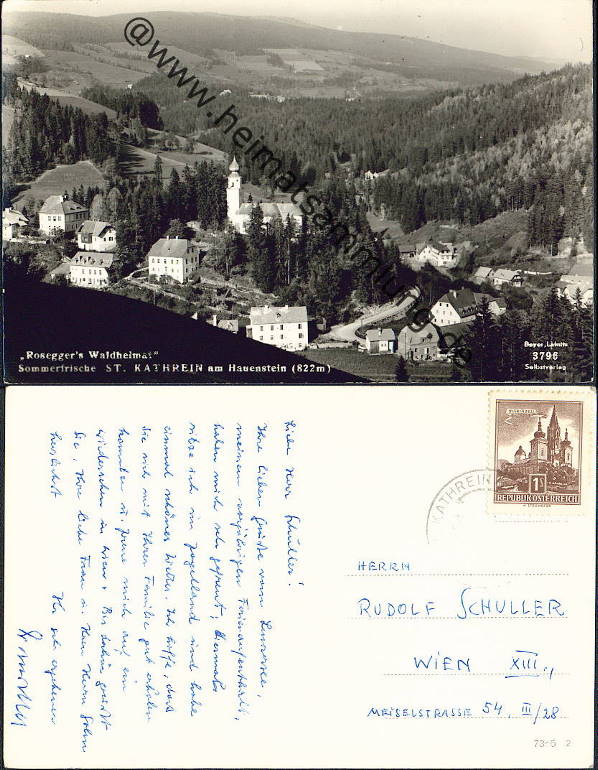 @www.heimatsammlung.de
„Rosegger's Waldheimat"
Sommerfrische ST. KATHREIN am Hauenstein (822m)
3796
Selbstverlag
Lieber Herr Schuller!
Ihre lieben Grüße vom
meinem vorjährigen Ferienaufenthalt,
haben mich sehr gefreut. Diesmal
sitze ich im und habe
einmal schönes Wetter. Ich hoffe, dass
Sie sich mit Ihrer Familie gut erholen
konnten u. freue mich auf ein
wiedersehen in Wien. Bis dahin grüßt
Sie, Ihre liebe Frau u. Ihren Herrn Sohn
herzlichst
Ihr sehr ergebener
KATHREIN
1S
REPUBLIK ÖSTERREICH
HERRN
RUDOLF SCHULLER
WIEN XIII.,
MEISELSTRASSE 54, III/28
73-6 2